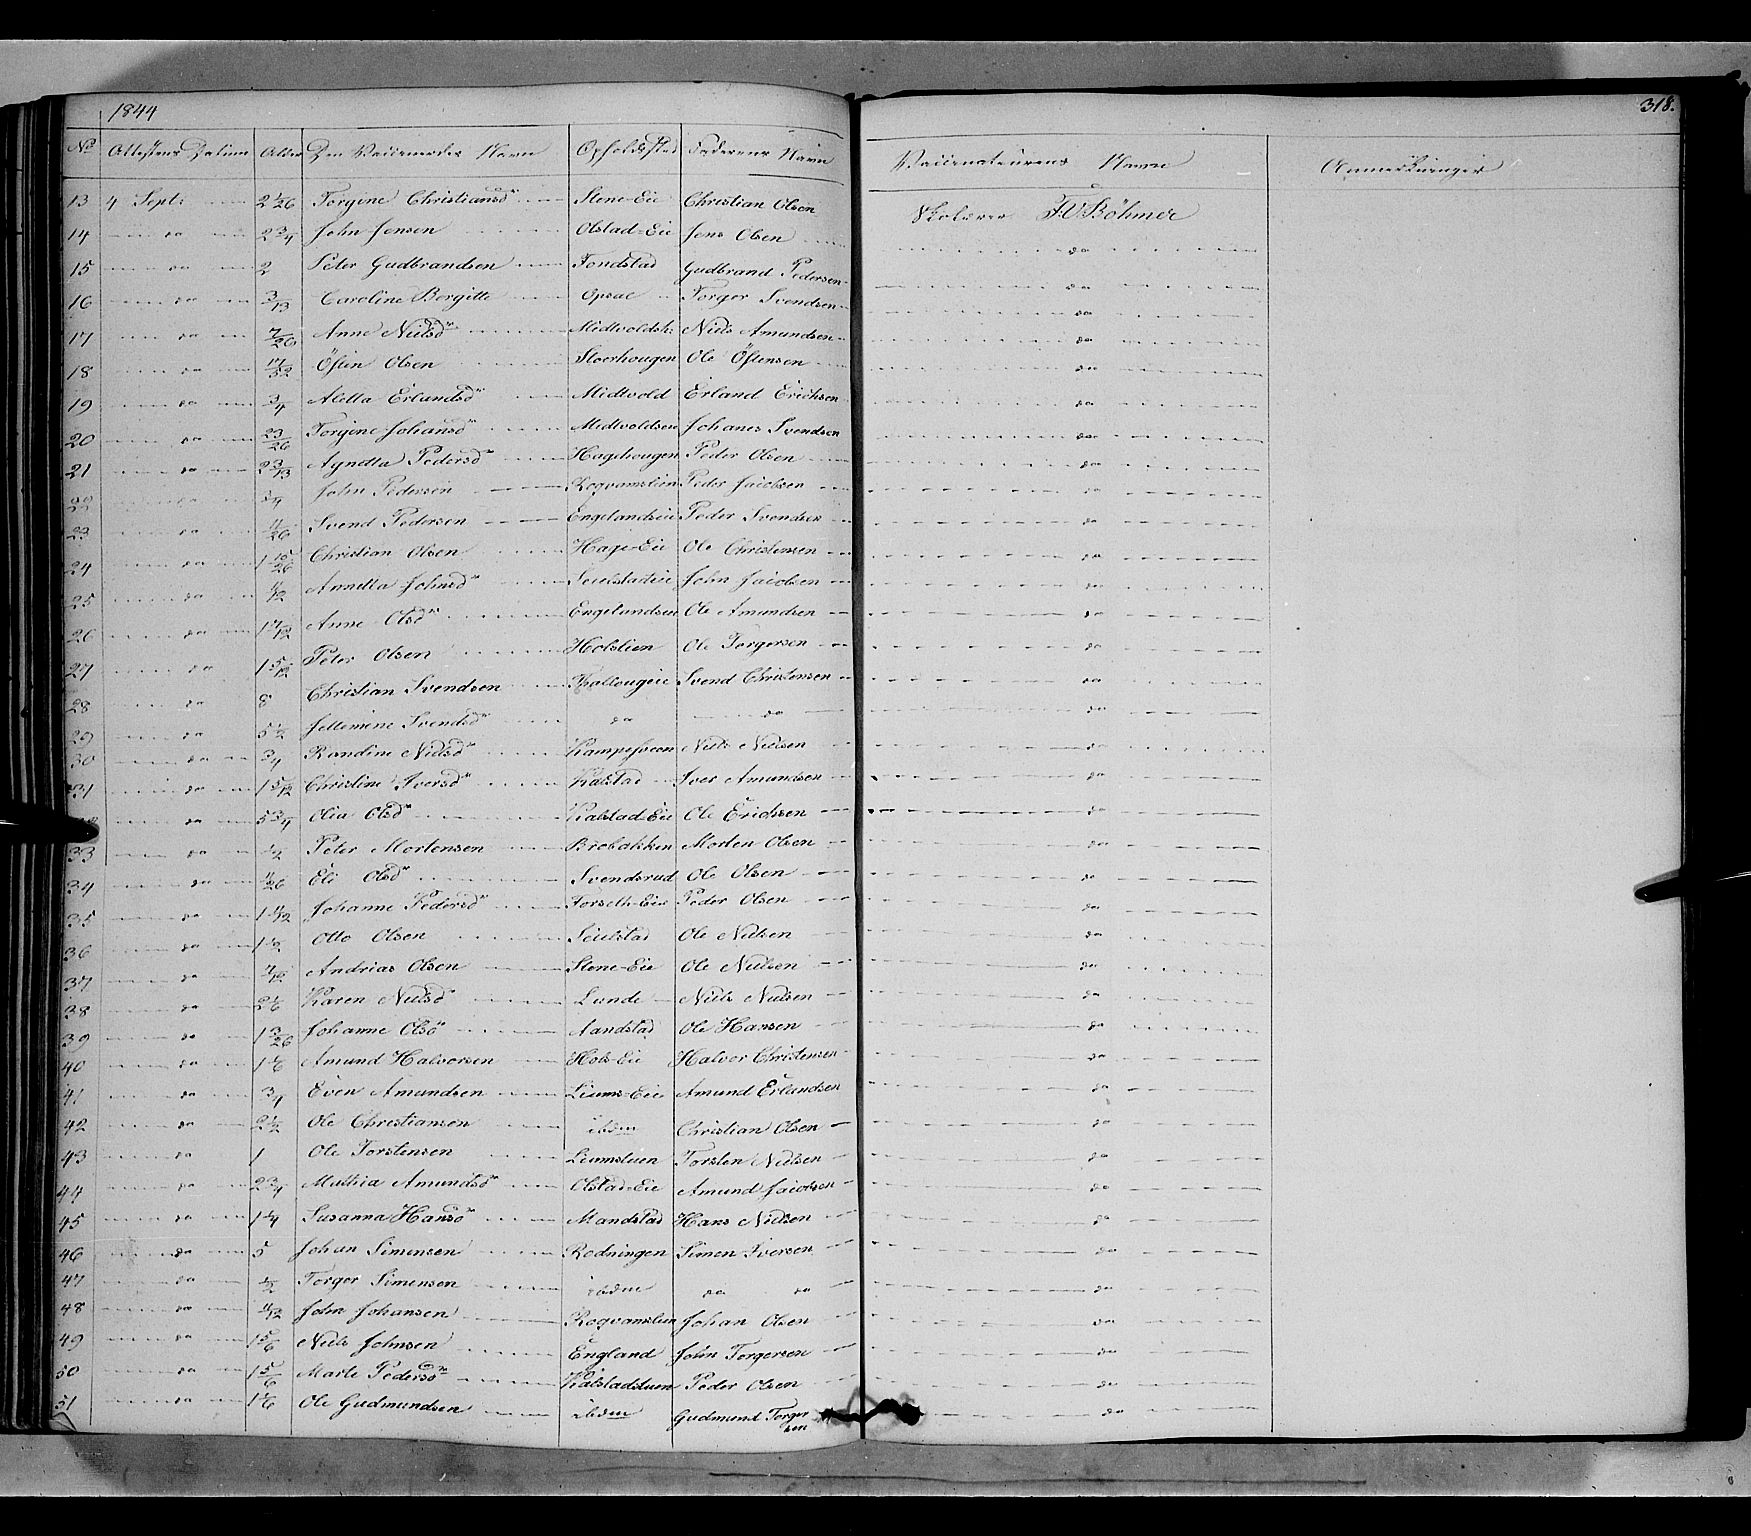 1844
318.
No Attestens Datum Alder Den Vaccineredes Navn Opholdssted Faderens Navn Vaccinateurens Navn Anmærkninger
13 4 Septr 2 1/26 Torgine Christiansd Stene-Eie Christian Olsen Skolærer F. W Böhmer
14 do 2 3/4 John Jensen Olstad-Eie Jens Olsen do
15 do 2 Peter Gudbrandsen Tondstad Gudbrand Pedersen do
16 do 3/13 Caroline Borgitte Opsal Torger Svendsen do
17 do 7/26 Anne Nielsd Midtvoldsh. Niels Amundsen do
18 do 17/52 Östen Olsen Stoerhougen Ole Östensen do
19 do 3/4 Aletta Erlandsd Midtvold Erland Erichsen do
20 do 23/26 Torgine Johansd Midtvoldseie Johanes Svendsen do
21 do 2 3/13 Agnetta Pedersd Hagehougen Peder Olsen do
22 do 3/4 John Pedersen Rogvamslien Peder Jacobsen do
23 do 11/26 Svend Pedersen Engelandseie Peder Svendsen do
24 do 1 15/26 Christian Olsen Hage-Eie Ole Christensen do
25 do 1/12 Annetta Johnsd Seielstadeie John Jacobsen do
26 do 1 7/12 Anne Olsd Engelandseie Ole Amundsen do
27 do 1 5/12 Peter Olsen Holslien Ole Torgersen do
28 do 8 Christian Svendsen Svend Christensen do
29 do 5 1/2 Jellemine Svendsd do do do
30 do 3/4 Randine Nielsd Kampesveen Niels Nielsen do
31 do 1 5/12 Christine Iversd Kalstad Iver Amundsen do
do 5 3/4 Olia Olsd Kalstad-Eie Ole Erichsen do
33 do 1/2 Peter Mortensen Brobakken Morten Olsen do
34 do 11/26 Eli Olsd Svendsrud Ole Olsen do
35 do 1 1/12 Johanne Pedersd Forseth-Eie Peder Olsen do
36 do 1 1/2 Otto Olsen Seielstad Ole Nielsen do
37 do 7/12 Andrias Olsen Stene-Eie Ole Nielsen do
38 do 2 1/6 Karen Nielsd Lunde Niels Nielsen do
39 do 1 3/26 Johanne Olsd Aandstad Ole Hansen do
40 do 1 1/6 Amund Halvorsen Hols-Eie Halvor Christensen do
41 do 3/4 Even Amundsen Liums-Eie Amund Erlandsen do
42 do 2 1/2 Ole Christiansen ibdm Christian Olsen do
43 do 1 Ole Torstensen Liumstuen Torsten Nielsen do
44 do 2 3/4 Mathia Amundsd Olstad-Eie Amund Jacobsen do
45 do 1 1/4 Susanna Hansd Mandstad Hans Nielsen do
46 do 5 Johan Simensen Rodningen Simen Iversen do
47 do 1/2 Torger Simensen ibdm do do do
48 do 11/12 John Johansen Rogvamslien Johan Olsen do
49 do 1 5/6 Niels Johnsen England John Torgersen do
50 do 1 5/6 Marte Pedersd Kalstadstuen Peder Olsen do
51 do 1 1/6 Ole Gudmundsen ibdm Gudmund Torger do
sen